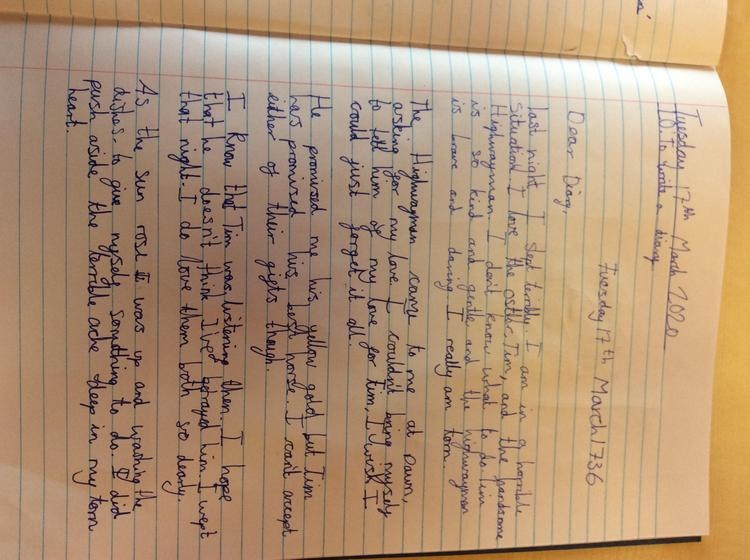 Tuesday 17th March 2020
L.O. To write a diary
Tuesday 17th March 1736
Dear Diary,
Last night I slept terribly I am in a horrible
situation I love the ostler Tim, and the handsome
Highwayman I don't know what to do. Tim
is so kind and gentle and the highwayman
is brave and daring I really am torn.
The Highwayman came to me at Dawn,
asking for my love. I couldn't bring myself
to tell him of my love for Tim, I wish I
could just forget it all.
He promised me his yellow gold but Tim
has promised his best horse. I can't accept
either of their gifts though.
I know that Tim was listening then. I hope
that he doesn't think I've betrayed him. I wept
that night. I do love them both so dearly.
As the sun rose I was up and washing the
dishes - to give myself something to do. I did
push aside the terrible ache deep in my torn
heart.